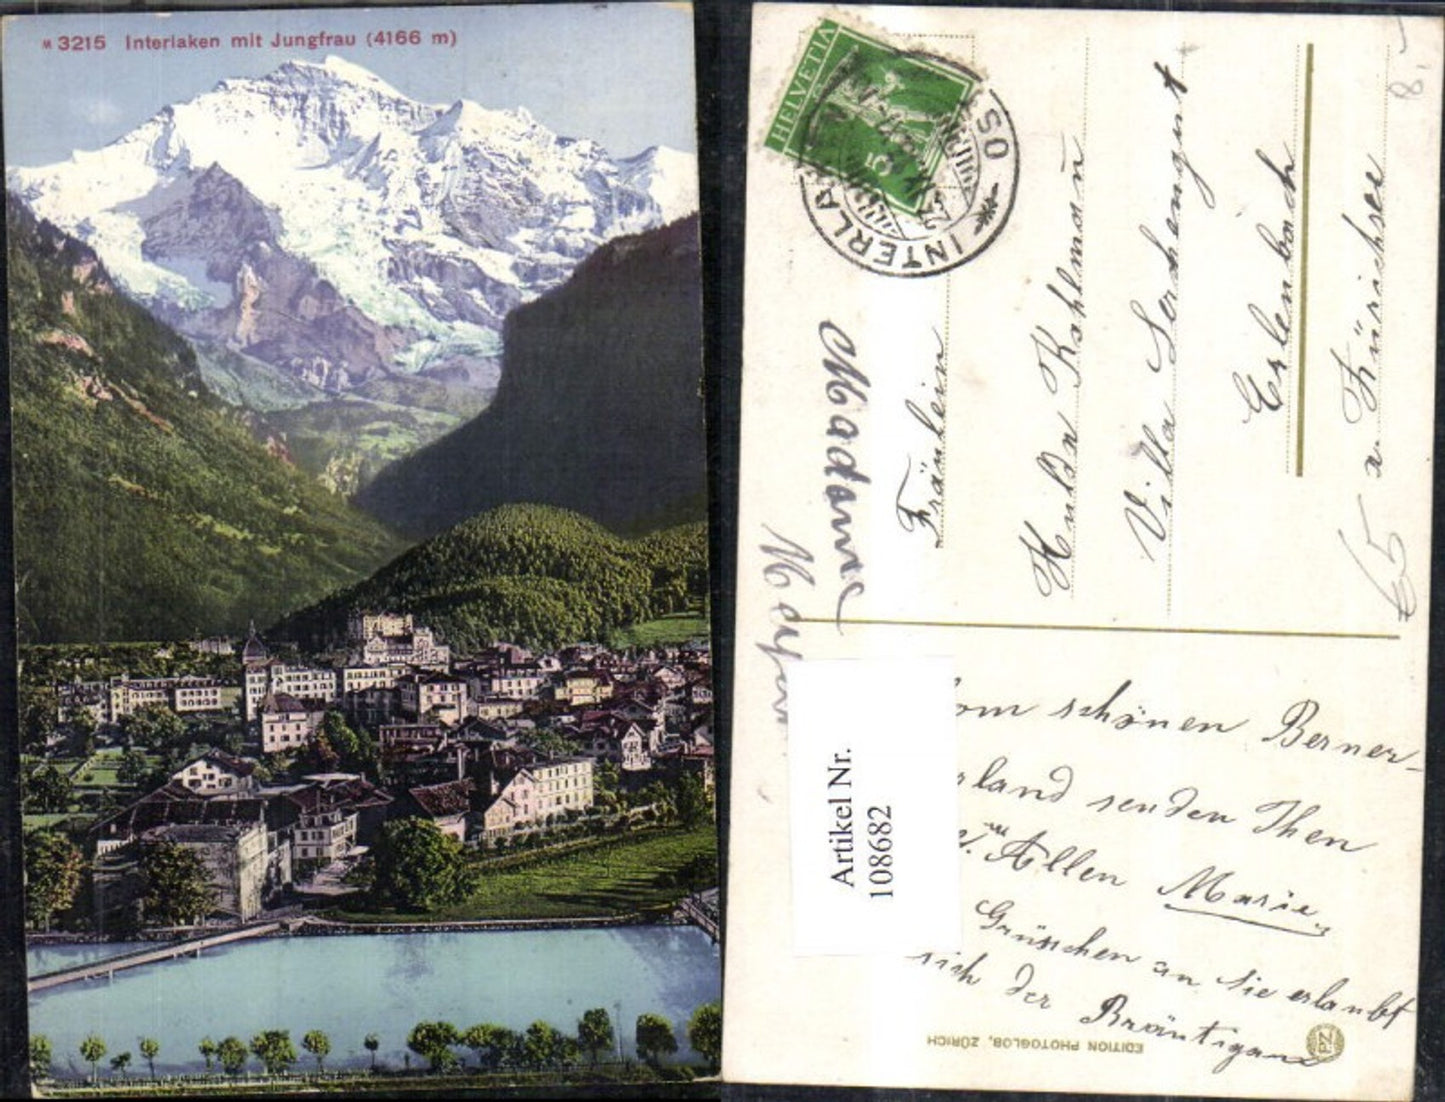 M 3215 Interlaken mit Jungfrau (4166 m)
HELVETIA
5
INTERLA
OST
8.-
Fräulein
Hulda Kohlmann
Villa Serchengut
Erlenbach
a. Zürichsee
65
Madame
Artikel Nr.
108682
om schönen Berner-
rland senden Ihen
Allen Marie
Grüsschen an Sie erlaubt
sich der Bräutigam
EDITION PHOTOGLOB, ZÜRICH
PZ